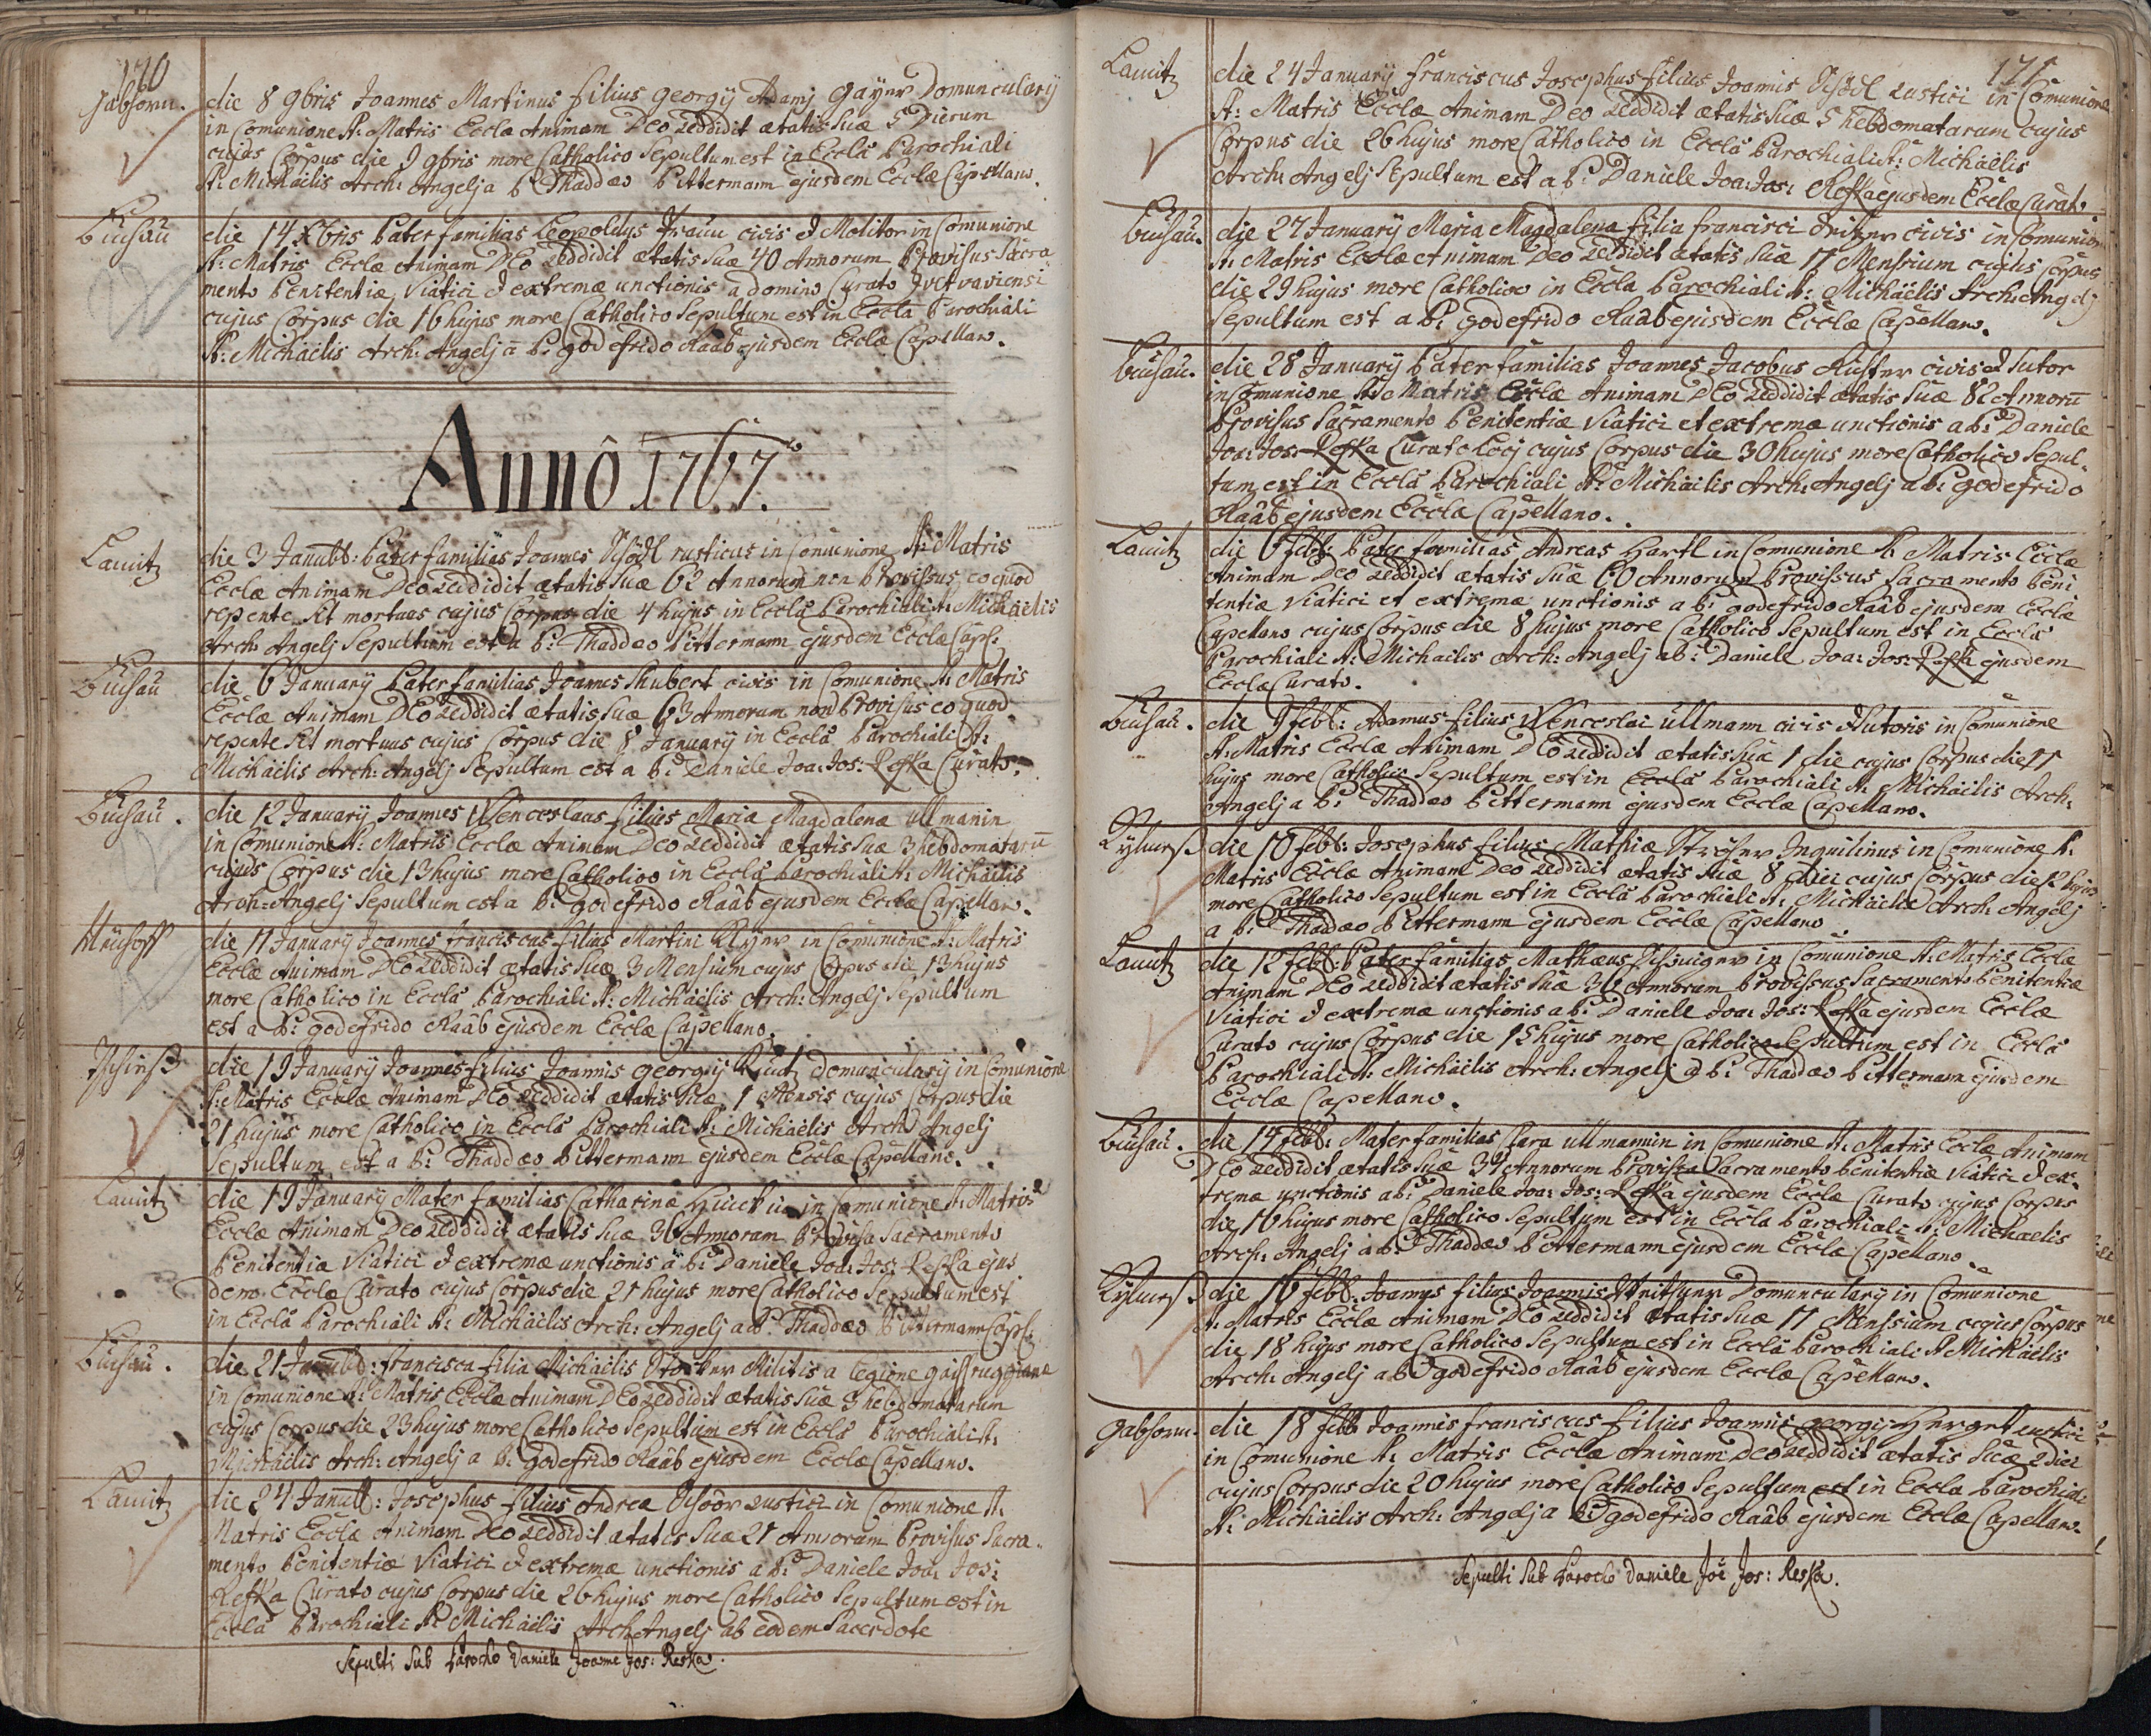 170
Gabhorn. die 8 9bris Joannes Martinus filius Georgij Adamj Gayer Domuncularij
in Comunione St: Matris Eccl̃æ Animam Deo reddidit ætatis suæ 5 Dierum
cujus Corpus die 9 9bris more Catholico Sepultum est in Eccl̃a Parochiali
St: Michäelis Arch: Angelj a P: Thaddæo Pittermann ejusdem Eccl̃æ Capellano.
Buchau die 14 Xbris Pater familias Leopoldus civis et Molitor in Comunione
St: Matris Eccl̃æ Animam DEo reddidit ætatis suæ 40 Annorum Provisus Sacra
mento Penitentiæ Viatici et extremæ unctionis a domino Curato
cujus Corpus die 16 hujus more Catholico Sepultum est in Eccl̃a Parochiali
St: Michäelis Arch: Angelj a P: godefrido Raab ejusdem Eccl̃æ Capellano.
Anno 1767.
die 3 Janu: Pater familias Joannes rusticus in Comunione St: Matris
Eccl̃æ Animam Deo reddidit ætatis suæ 62 Annorum non Provissus eo quod
repente sit mortuus cujus Corpus die 4 hujus in Eccl̃a Parochiali St: Michäelis
Arch: Angelj Sepultum est a P: Thaddæo Pittermann ejusdem Eccl̃æ Capl:
Buchau die 6 Januarÿ Pater familias Joannes Shubert civis in Comunione St: Matris
Eccl̃æ Animam DEo reddidit ætatis suæ 63 Annorum non Provisus eo quod
repente sit mortuus cujus Corpus die 8 Januarÿ in Eccl̃a Parochiali St:
Michäelis Arch: Angelj Sepultum est a P: Daniele Joa: Jos: Reska Curato.
Buchau. die 12 Januarÿ Joannes Wenceslaus filius Maria Magdalenæ Ullmanin
in Comunione St: Matris Eccl̃æ Animam Deo reddidit ætatis suæ 3 hebdomatarũ
cujus Corpus die 13 hujus more Catholico in Eccl̃a Parochiali St: Michäelis
Arch: Angelj Sepultum est a P: godefrido Raab ejusdem Eccl̃æ Capellano.
die 11 Januarÿ Joannes franciscus filius Martini in Comunione St: Matris
Eccl̃æ Animam DEo reddidit ætatis suæ 3 Mensium cujus Corpus die 13 hujus
more Catholico in Eccl̃a Parochiali St: Michäelis Arch: Angelj Sepultum
est a P: godefrido Raab ejusdem Eccl̃æ Capellano.
die 19 Januarÿ Joannes filius Joannis georgij domuncularÿ in Comunione
St: Matris Eccl̃æ Animam DEo reddidit ætatis suæ 1 Mensis cujus Corpus die
21 hujus more Catholico in Eccl̃a Parochiali St: Michäelis Arch: Angelj
Sepultum est a P: Thaddæo Pittermann ejusdem Eccl̃æ Capellano.
die 19 Januarÿ Mater familias Catharina in Comunione St: Matris
Eccl̃æ Animam Deo reddidit ætatis suæ 36 Annorum Provisa Sacramento
Penitentiæ Viatici et extremæ unctionis a P: Daniele Joa: Jos: Reska ejus
dem Eccl̃æ Curato cujus Corpus die 21 hujus more Catholico Sepultum est
in Eccl̃a Parochiali St: Michäelis Arch: Angelj a P: Thaddæo Pittermann Capl:
Buchau. die 21 Janu: francisca filia Michäelis Militis a legione
in Comunione St: Matris Eccl̃æ Animam DEo reddidit ætatis suæ 3 hebdomatarum
cujus Corpus die 23 hujus more Catholico Sepultum est in Eccl̃a Parochiali St:
Michäelis Arch: Angelj a P: Godefrido Raab ejusdem Eccl̃æ Capellano.
die 24 Janu: Josephus filius Andreæ rustici in Comunione St:
Matris Eccl̃æ Animam DEo reddidit ætatis suæ 21 Annorum Provisus Sacra
mento Penitentiæ Viatici et extremæ unctionis a P: Daniele Joa: Jos:
Reska Curato cujus Corpus die 26 hujus more Catholico Sepultum est in
Eccl̃a Parochiali St: Michäelis Arch Angelj ab eodem Sacerdote
Sepulti Sub Parocho Daniele Joanne Jos: Reska.
171
die 24 Januarÿ franciscus Josephus filius Joannis rustici in Comunione
St: Matris Eccl̃æ Animam Deo reddidit ætatis suæ 5 hebdomatarum cujus
Corpus die 26 hujus more Catholico in Eccl̃a Parochiali St: Michäelis
Arch: Angelj Sepultum est a P: Daniele Joa: Jos: Reska ejusdem Eccl̃æ Curato
Buchau. die 27 Januarÿ Maria Magdalena filia francisci civis in Comunione
St: Matris Eccl̃æ Animam Deo reddidit ætatis suæ 17 Mensium cujus Corpus
die 29 hujus more Catholico in Eccl̃a Parochiali St: Michäelis Arch: Angelj
Sepultum est a P: godefrido Raab ejusdem Eccl̃æ Capellano.
Buchau. die 28 Januarÿ Pater familias Joannes Jacobus civis et Sutor
in Comunione St: Matris Eccl̃æ Animam DEo reddidit ætatis suæ 82 Annorũ
Provisus Sacramento Penitentiæ Viatici et extremæ unctionis a P: Daniele
Joa: Jos: Reska Curato Locj cujus Corpus die 30 hujus more Catholico Sepul-
tum est in Eccl̃a Parochiali St: Michäelis Arch: Angelj a P: godefrido
Raab ejusdem Eccl̃æ Capellano.
die 6 feb: Pater familias Andreas Hartl in Comunione St: Matris Eccl̃æ
Animam Deo reddidit ætatis suæ 60 Annorum Provissus Sacramento Peni
tentiæ Viatici et extremæ unctionis a P: godefrido Raab ejusdem Eccl̃æ
Capellano cujus Corpus die 8 hujus more Catholico Sepultum est in Eccl̃a
Parochiali St: Michaelis Arch: Angelj a P: Daniele Joa: Jos: Reska ejusdem
Eccl̃æ Curato.
Buchau. die 9 feb: Adamus filius Wenceslai Ullmann civis et Sutoris in Comunione
St: Matris Eccl̃æ Animam DEo reddidit ætatis suæ 1 die cujus Corpus die 11
hujus more Catholico Sepultum est in Eccl̃a Parochiali St: Michäelis Arch:
Angelj a P: Thaddæo Pittermann ejusdem Eccl̃æ Capellano.
die 10 feb: Josephus filius Mathiæ Inquilinus in Comunione St:
Matris Eccl̃æ Animam Deo reddidit ætatis suæ 8 diei cujus Corpus die 12 hujus
more Catholico Sepultum est in Eccl̃a Parochiali St: Michäelis Arch: Angelj
a P: Thaddæo Pittermann ejusdem Eccl̃æ Capellano
die 12 feb: Pater familias Mathæus in Comunione St: Matris Eccl̃æ
Animam DEo reddidit ætatis suæ Annorum Provissus Sacramento Penitentiæ
Viatici et extremæ unctionis a P: Daniele Joa: Jos: Reska ejusdem Eccl̃æ
Curato cujus Corpus die 15 hujus more Catholico Sepultum est in Eccl̃a
Parochiali St: Michäelis Arch: Angelj a P: Thaddæo Pittermann ejusdem
Eccl̃æ Capellano.
Buchau. die 14 feb: Mater familias Clara Ullmannin in Comunione St: Matris Eccl̃æ Animam
DEo reddidit ætatis suæ Annorum Provissa Sacramento Penitentiæ Viatici et ex-
tremæ unctionis a P: Daniele Joa: Jos: Reska ejusdem Eccl̃æ Curato cujus Corpus
die 16 hujus more Catholico Sepultum est in Eccl̃a Parochiali St: Michaelis
Arch: Angelj a P: Thaddæo Pittermann ejusdem Eccl̃æ Capellano.
die 16 feb: Joannes filius Joannis Domuncularÿ in Comunione
St: Matris Eccl̃æ Animam DEo reddidit ætatis suæ 17 Mensium cujus Corpus
die 18 hujus more Catholico Sepultum est in Eccl̃a Parochiali St: Michäelis
Arch: Angelj a P: godefrido Raab ejusdem Eccl̃æ Capellano.
Gabhorn. die 18 feb: Joannes franciscus filius Joannis georgij Herget rustici
in Comunione St: Matris Eccl̃æ Animam Deo reddidit ætatis suæ 2 diei
cujus Corpus die 20 hujus more Catholico Sepultum est in Eccl̃a Parochiali
St: Michäelis Arch: Angelj a P: godefrido Raab ejusdem Eccl̃æ Capellano.
Sepulti Sub Parocho Daniele Joẽ Jos: Reska.